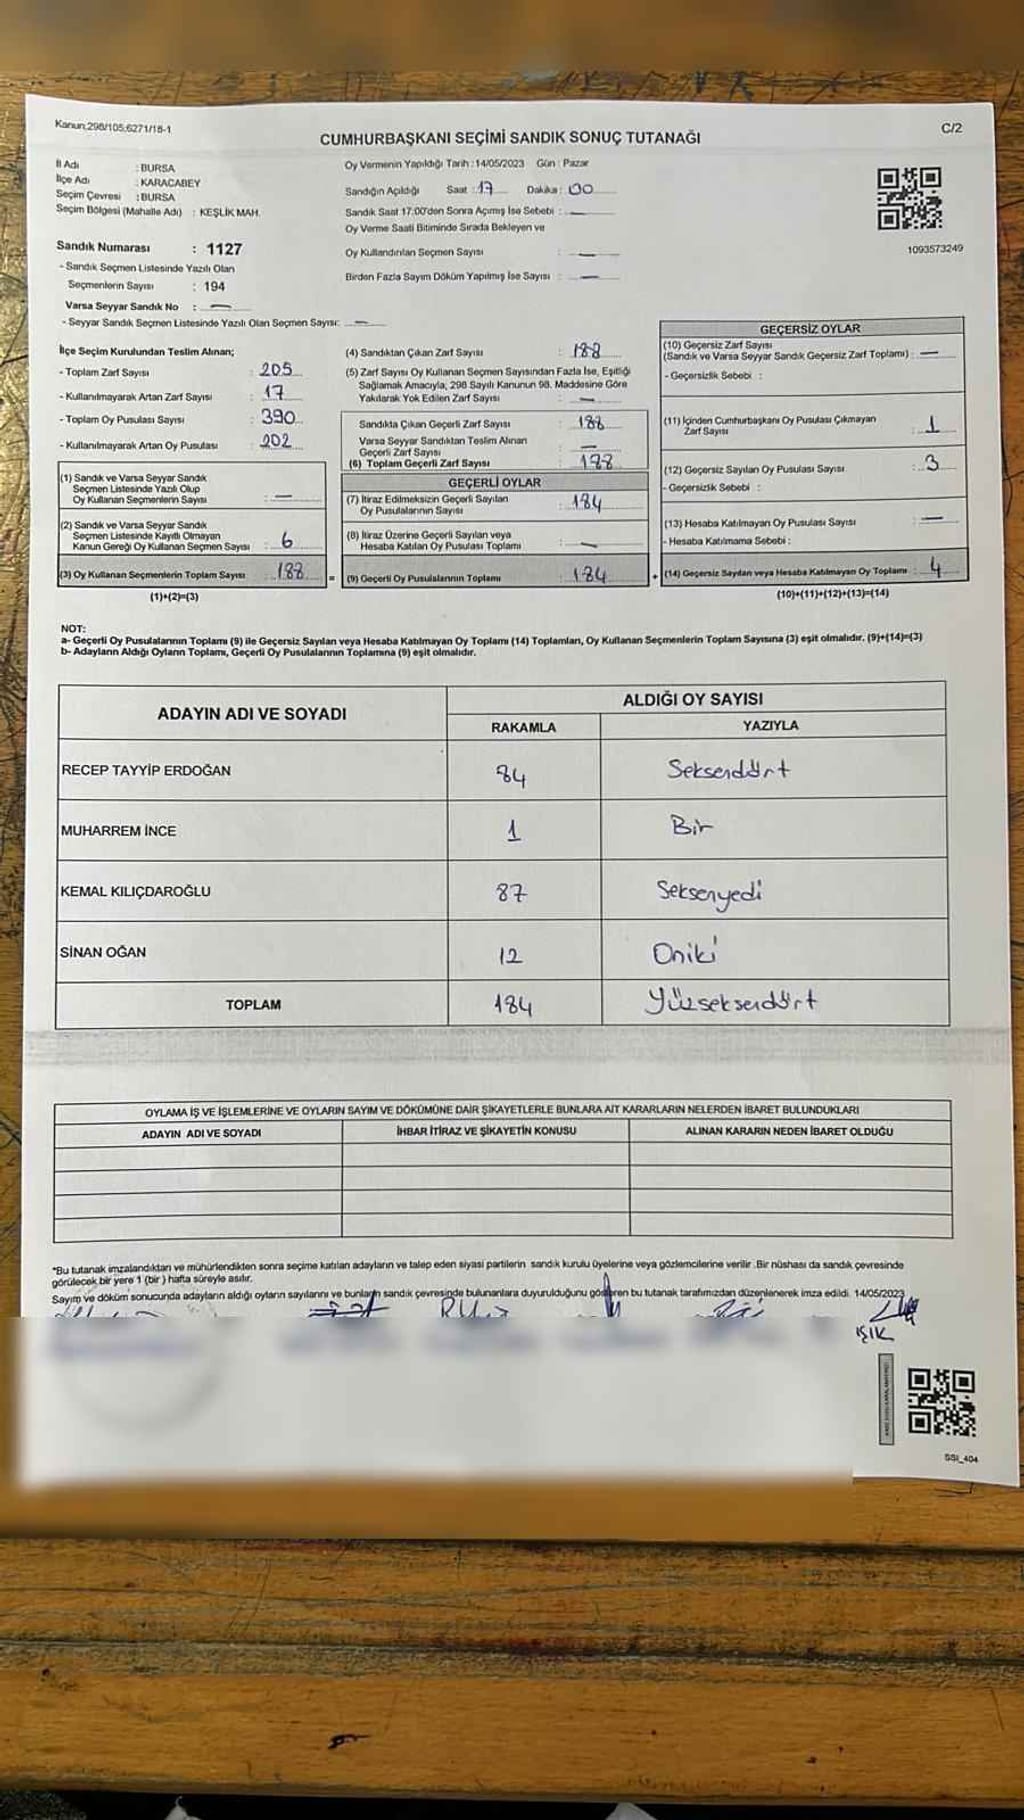 Kanun:298/105;6271/18-1
C/2
CUMHURBAŞKANI SEÇİMİ SANDIK SONUÇ TUTANAĞI
İl Adı : BURSA
İlçe Adı : KARACABEY
Seçim Çevresi : BURSA
Seçim Bölgesi (Mahalle Adı) : KEŞLİK MAH.
Sandık Numarası : 1127
- Sandık Seçmen Listesinde Yazılı Olan
Seçmenlerin Sayısı : 194
Varsa Seyyar Sandık No : —
- Seyyar Sandık Seçmen Listesinde Yazılı Olan Seçmen Sayısı: —
Oy Vermenin Yapıldığı Tarih : 14/05/2023 Gün : Pazar
Sandığın Açıldığı Saat : 17 Dakika : 00
Sandık Saat 17:00'den Sonra Açımış İse Sebebi : —
Oy Verme Saati Bitiminde Sırada Bekleyen ve
Oy Kullandırılan Seçmen Sayısı : —
Birden Fazla Sayım Döküm Yapılmış İse Sayısı : —
1093573249
İlçe Seçim Kurulundan Teslim Alınan;
- Toplam Zarf Sayısı : 205
- Kullanılmayarak Artan Zarf Sayısı : 17
- Toplam Oy Pusulası Sayısı : 390
- Kullanılmayarak Artan Oy Pusulası : 202
(1) Sandık ve Varsa Seyyar Sandık
Seçmen Listesinde Yazılı Olup
Oy Kullanan Seçmenlerin Sayısı : —
(2) Sandık ve Varsa Seyyar Sandık
Seçmen Listesinde Kayıtlı Olmayan
Kanun Gereği Oy Kullanan Seçmen Sayısı : 6
(3) Oy Kullanan Seçmenlerin Toplam Sayısı : 188
(1)+(2)=(3)
(4) Sandıktan Çıkan Zarf Sayısı : 188
(5) Zarf Sayısı Oy Kullanan Seçmen Sayısından Fazla İse, Eşitliği
Sağlamak Amacıyla, 298 Sayılı Kanunun 98. Maddesine Göre
Yakılarak Yok Edilen Zarf Sayısı : —
Sandıkta Çıkan Geçerli Zarf Sayısı : 188
Varsa Seyyar Sandıktan Teslim Alınan
Geçerli Zarf Sayısı : —
(6) Toplam Geçerli Zarf Sayısı : 188
GEÇERLİ OYLAR
(7) İtiraz Edilmeksizin Geçerli Sayılan
Oy Pusulalarının Sayısı : 184
(8) İtiraz Üzerine Geçerli Sayılan veya
Hesaba Katılan Oy Pusulası Toplamı : —
= (9) Geçerli Oy Pusulalarının Toplamı : 184
GEÇERSİZ OYLAR
(10) Geçersiz Zarf Sayısı
(Sandık ve Varsa Seyyar Sandık Geçersiz Zarf Toplamı) : —
- Geçersizlik Sebebi :
(11) İçinden Cumhurbaşkanı Oy Pusulası Çıkmayan
Zarf Sayısı : 1
(12) Geçersiz Sayılan Oy Pusulası Sayısı : 3
- Geçersizlik Sebebi :
(13) Hesaba Katılmayan Oy Pusulası Sayısı : —
- Hesaba Katılmama Sebebi :
+ (14) Geçersiz Sayılan veya Hesaba Katılmayan Oy Toplamı : 4
(10)+(11)+(12)+(13)=(14)
NOT:
a- Geçerli Oy Pusulalarının Toplamı (9) ile Geçersiz Sayılan veya Hesaba Katılmayan Oy Toplamı (14) Toplamları, Oy Kullanan Seçmenlerin Toplam Sayısına (3) eşit olmalıdır. (9)+(14)=(3)
b- Adayların Aldığı Oyların Toplamı, Geçerli Oy Pusulalarının Toplamına (9) eşit olmalıdır.
ADAYIN ADI VE SOYADI
ALDIĞI OY SAYISI
RAKAMLA YAZIYLA
RECEP TAYYİP ERDOĞAN 84 Seksendört
MUHARREM İNCE 1 Bir
KEMAL KILIÇDAROĞLU 87 Seksenyedi
SİNAN OĞAN 12 Oniki
TOPLAM 184 Yüzseksendört
OYLAMA İŞ VE İŞLEMLERİNE VE OYLARIN SAYIM VE DÖKÜMÜNE DAİR ŞİKAYETLERLE BUNLARA AİT KARARLARIN NELERDEN İBARET BULUNDUKLARI
ADAYIN ADI VE SOYADI İHBAR İTİRAZ VE ŞİKAYETİN KONUSU ALINAN KARARIN NEDEN İBARET OLDUĞU
*Bu tutanak imzalandıktan ve mühürlendikten sonra seçime katılan adayların ve talep eden siyasi partilerin sandık kurulu üyelerine veya gözlemcilerine verilir .Bir nüshası da sandık çevresinde
görülecek bir yere 1 (bir ) hafta süreyle asılır.
Sayım ve döküm sonucunda adayların aldığı oyların sayılarını ve bunların sandık çevresinde bulunanlara duyurulduğunu gösteren bu tutanak tarafımızdan düzenlenerek imza edildi. 14/05/2023
IŞIK
SSI_404